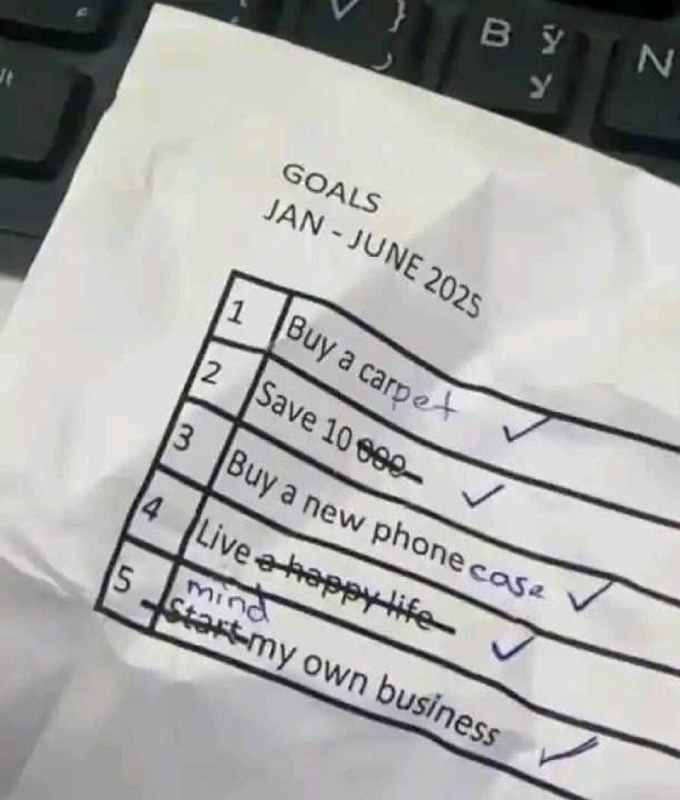 B
N
GOALS
JAN - JUNE 2025
1 Buy a carpet ✓
2 Save 10 000 ✓
3 Buy a new phone case ✓
4 Live a happy life ✓
mind
5 Start my own business ✓